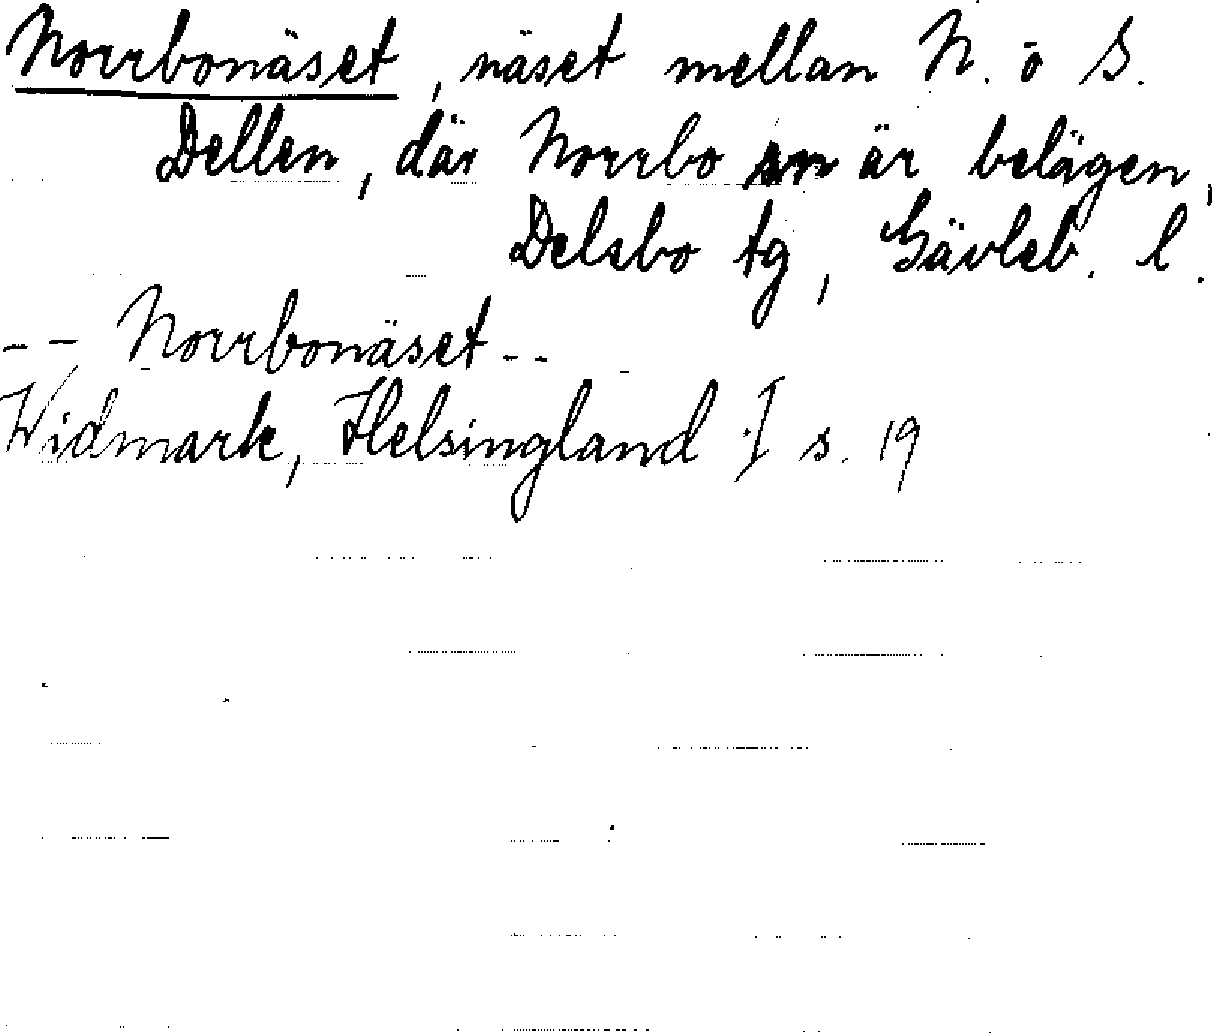 Norrbonäset, näset mellan N. o S.
Dellen, där Norrbo sn är belägen,
Delsbo tg, Gävleb. l.
-- Norrbonäset --
Widmark, Helsingland I s. 19